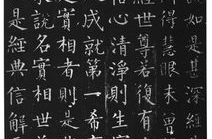 如是甚深經
得慧眼未曾
經世尊若復有
信心清淨則生
成就第一希
是實相者則是
說名實相世
是經典信解